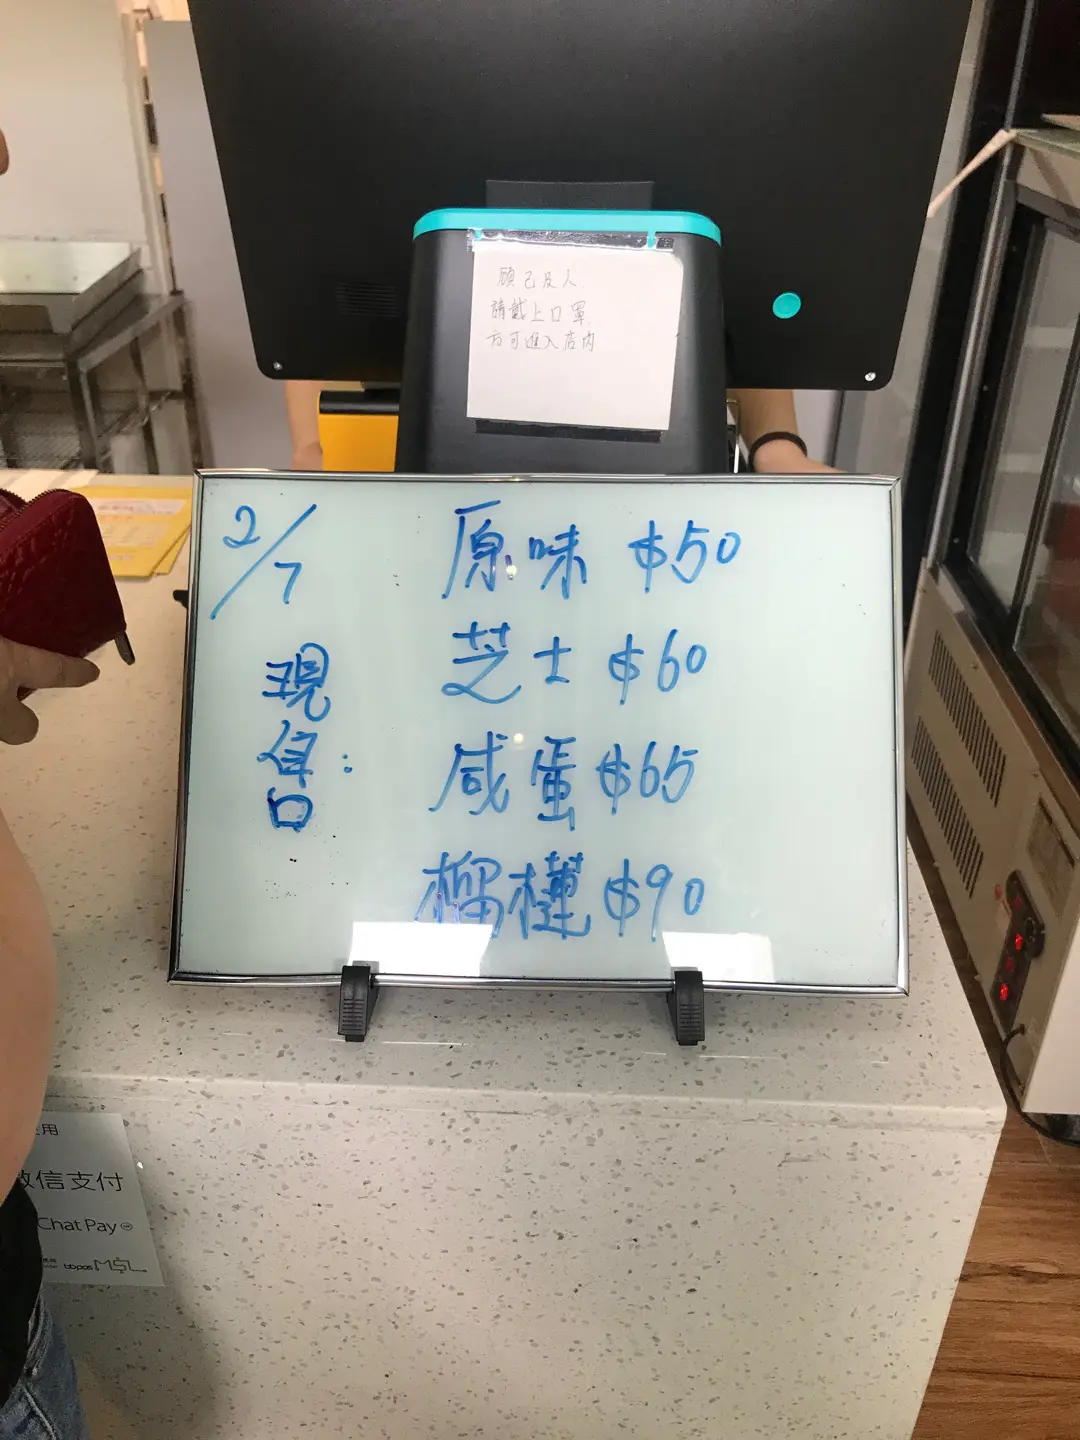 顧己及人
請戴上口罩
方可進入店內
2/7
現貨:
原味 $50
芝士 $60
咸蛋 $65
榴槤 $90
用
微信支付
Chat Pay
bbpos MSL